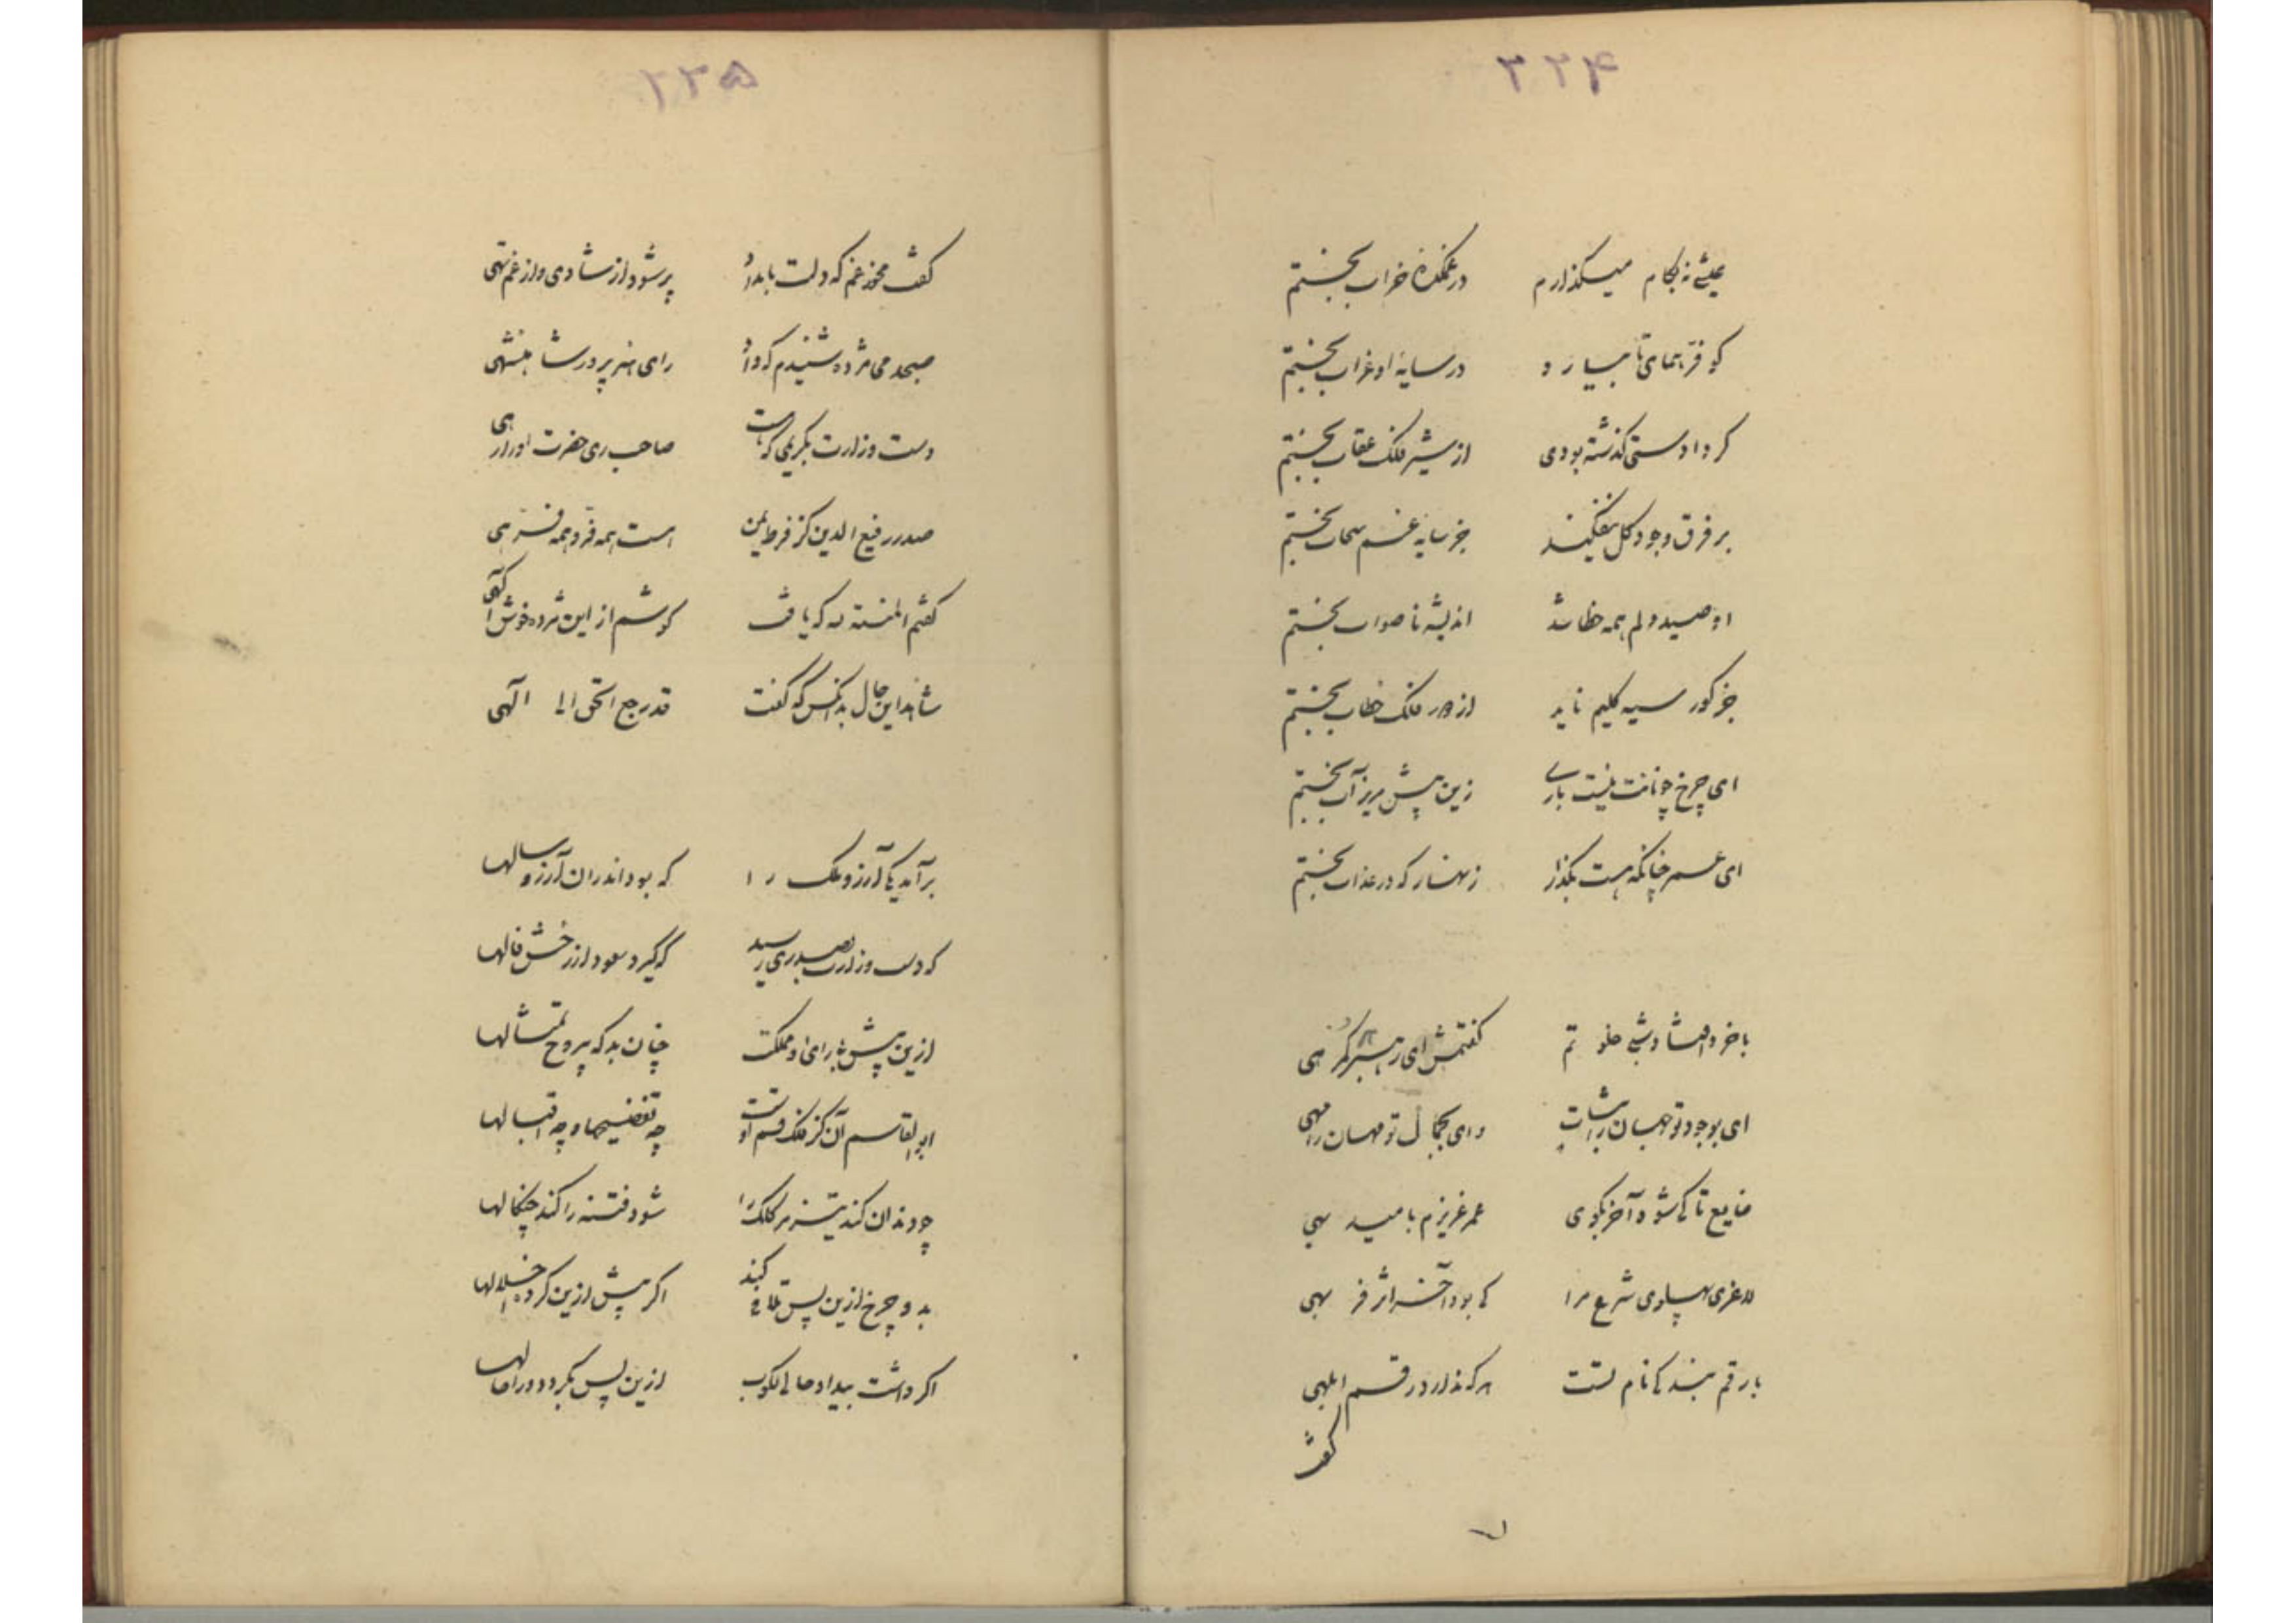 ۲۲۴
عیشی نه بکام میگذارم در غمکدهٔ خراب بختم
کو فرّ همای تا بسیارد در سایهٔ او غراب بختم
کر دادستی گذشته بودی از شیر فلک عقاب بختم
بر فرق وجود کل نیفکند جز سایه غم سحاب بختم
او صید دلم همه خطا شد اندیشه ناصواب بختم
جز کور سیه کلیم ناید از دور فلک خطاب بختم
ای چرخ چو نانت نیست باری زین بیش مریز آب بختم
ای عمر چنانکه هست بگذار زنهار که در عذاب بختم
با خرد شبی خلوتم گفتمش ای رهبر هر گمرهی
ای بوجود تو جهان را ثبات وای بجمال تو مهان را مهی
ضایع تا کی شود آخر بگوی عمر عزیزم بامید بهی
لاغری پهلوی شرع مرا کی بود آخر اثر فربهی
بار قم بند که نام تست هر که ندارد رقم ابلهی
گفت
۲۲۵
گفت مخور غم که دلت بامداد پر شود از شادی و از غم تهی
صبحدمی مژده شنیدم که داد رای هنرپرور شاهنشهی
دست وزارت بکریمی که هست صاحب ری حضرت او را رهی
صدر رفیع الدین کز فرط یمن هست همه فر و همه فرهی
گفتم المنة لله که یافت گوشم از این مژده خوش آگهی
شاهد این حال بد آنکس که گفت قد رجع الحق الی اهله
برآمد یکی آرزو ملک را که بود اندران آرزو سالها
که دست وزارت بصدری رسید که گیرد سعود از رخش فالها
ازین پیش بی رای او مملکت چنان بد که بی روح تمثالها
ابوالقاسم آن کز فلک قسم اوست چه تعظیمها و چه اقبالها
چو دندان کند تیز مر کلک را شود فتنه را کند چنگالها
بدو چرخ ازین پس تلافی کند اگر پیش ازین کرده اخلالها
اگر داشت بیداد حالی نکوب ازین پس بگردد ورا حالها